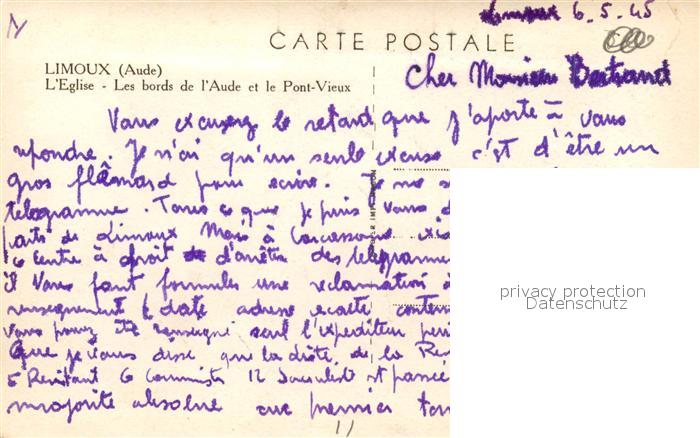 Limoux 6.5.45
CARTE POSTALE
LIMOUX (Aude)
L'Eglise - Les bords de l'Aude et le Pont-Vieux
Cher Monsieur Bertrand
Vous excuserez le retard que j'aporte à vous
repondre. Je n'ai qu'un seule excuse c'est d'être un
gros flêmard pour ecrire. Je ne s
telegramme. Tous ce que je puis vous d
parts de Limoux Mais à Carcassonne
centre à droit d'arrêter des telegramme
il vous faut formuler une reclamation
renseignement date adresse exacte conten
vous pouvez être renseigné seul l'expediteur
Que je vous dise que la liste de la Re
5 Resistant 6 Communiste 12 Socialist et passé
majorite absolue au premier tour
11
privacy protection
Datenschutz